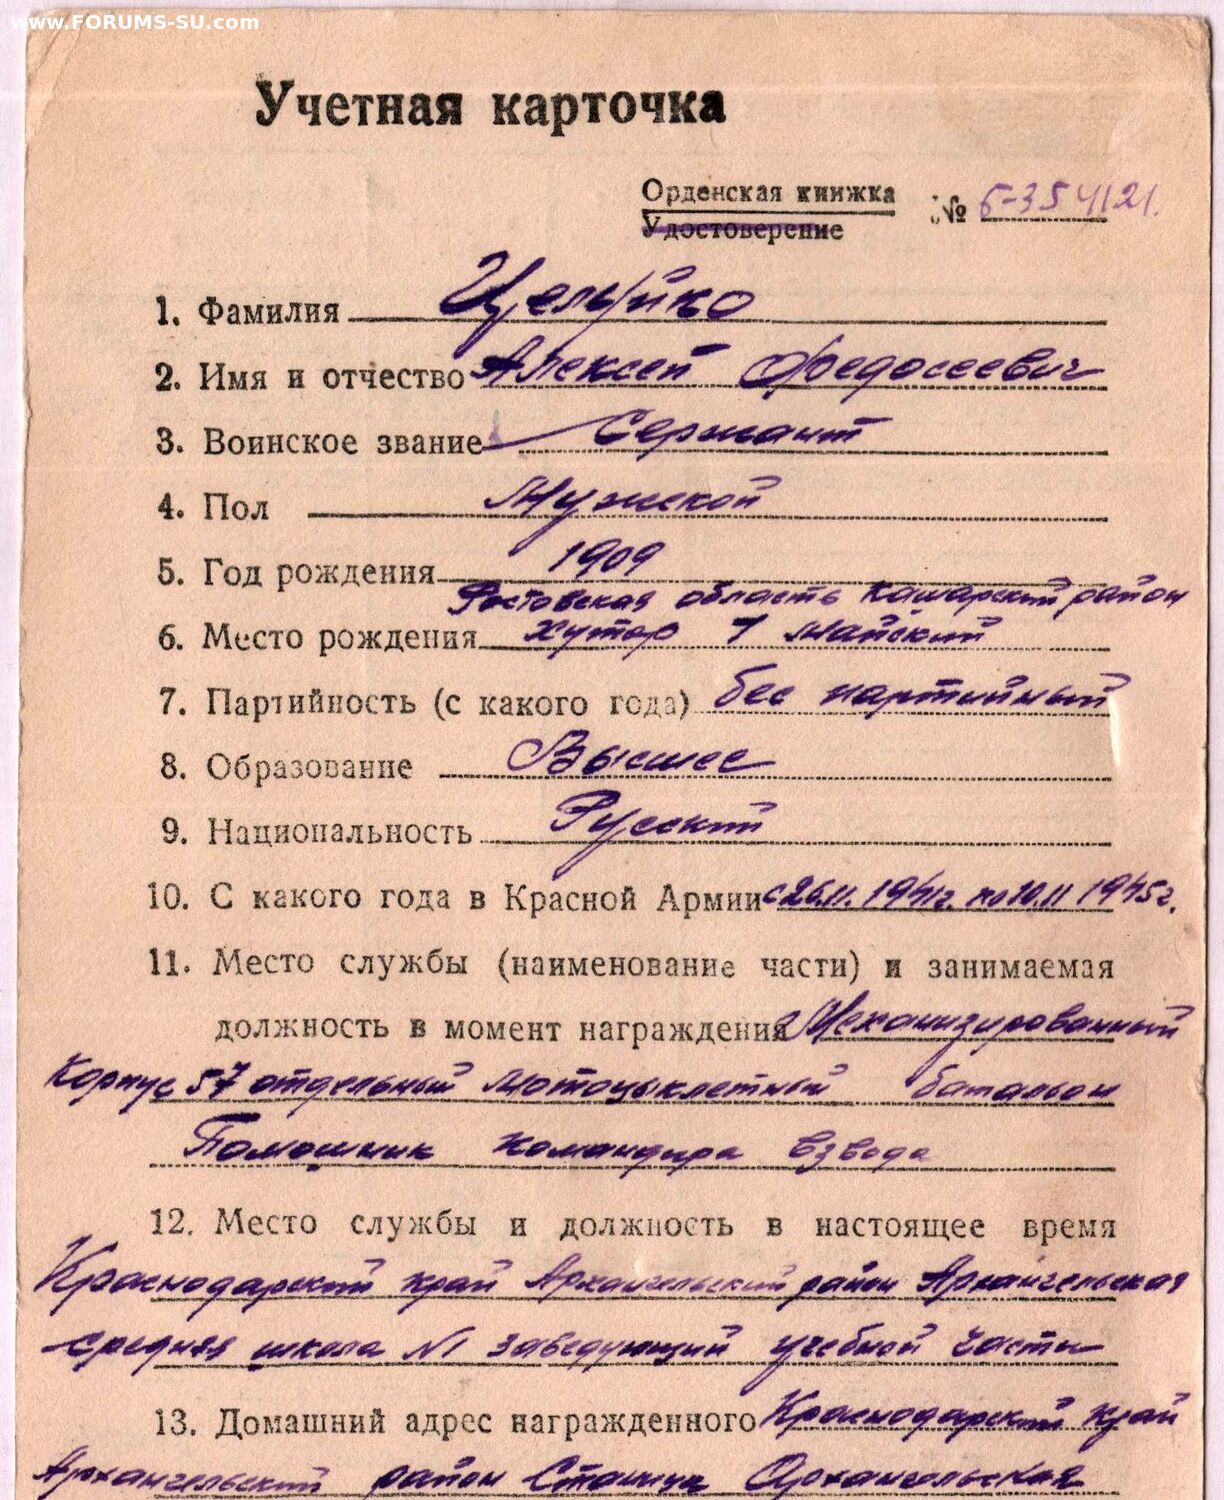 www.FORUMS-SU.com
Учетная карточка
Орденская книжка № Б-354121.
Удостоверение
1. Фамилия Целуйко
2. Имя и отчество Алексей Федосеевич
3. Воинское звание Сержант
4. Пол Мужской
5. Год рождения 1909
Ростовская область Кашарский район
6. Место рождения хутор 1 майский
7. Партийность (с какого года) бес партийный
8. Образование Высшее
9. Национальность Русский
10. С какого года в Красной Армии с 26.11. 1941г. по 10.11 1945г.
11. Место службы (наименование части) и занимаемая
должность в момент награждения Механизированный
Корпус 57 отдельный мотоцыклетный батальон
Помошник командира взвода
12. Место службы и должность в настоящее время
Краснодарский край Архангельский район Архангельская
средняя школа N1 заведующий учебной части
13. Домашний адрес награжденного Краснодарский край
Архангельский район Станица Архангельская